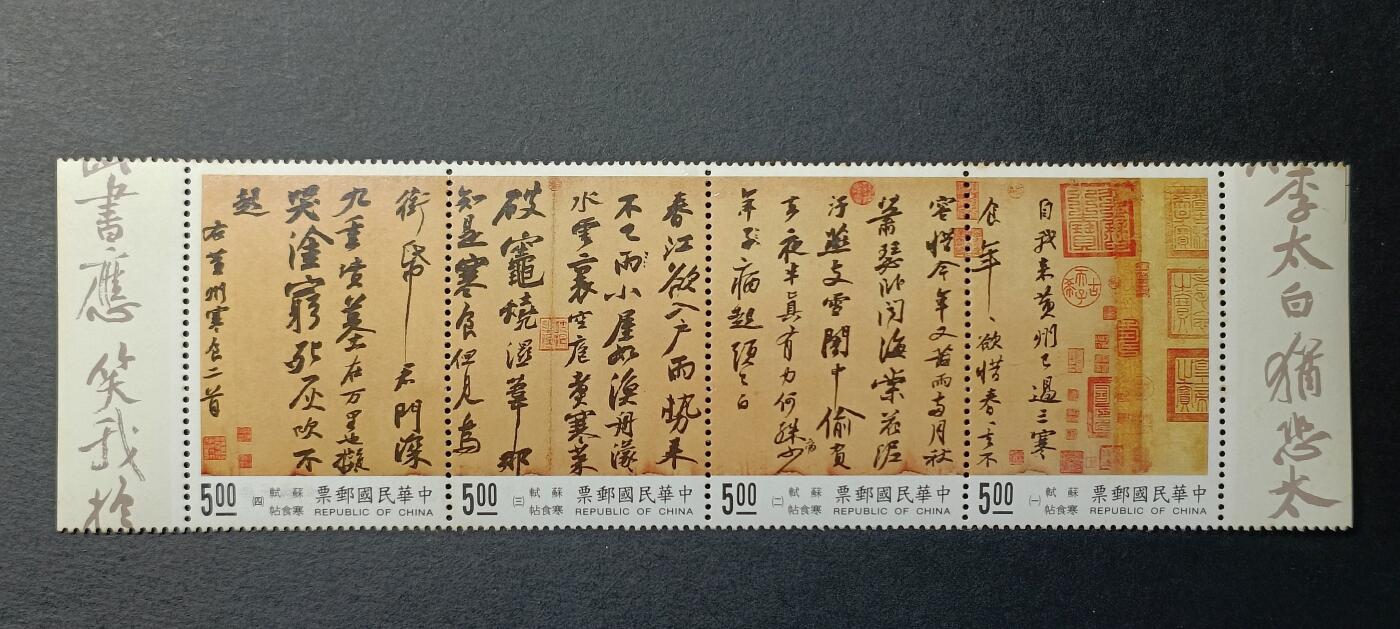 李太白猶恐太
自我來黃州已過三寒
食年〻欲惜春〻去不
容惜今年又苦雨兩月秋
蕭瑟卧聞海棠花泥
汙燕支雪闇中偷負
去夜半真有力何殊少
病
年子病起頭已白
春江欲入戶雨勢來
不已雨小屋如漁舟濛〻
水雲裏空庖煑寒菜
破竈燒濕葦那
知是寒食但見烏
銜帋君門深
九重墳墓在万里也擬
哭塗窮死灰吹不
起
右黃州寒食二首
書應笑我於
中華民國郵票
REPUBLIC OF CHINA
蘇軾寒食帖
(一)
5.00
中華民國郵票
REPUBLIC OF CHINA
蘇軾寒食帖
(二)
5.00
中華民國郵票
REPUBLIC OF CHINA
蘇軾寒食帖
(三)
5.00
中華民國郵票
REPUBLIC OF CHINA
蘇軾寒食帖
(四)
5.00